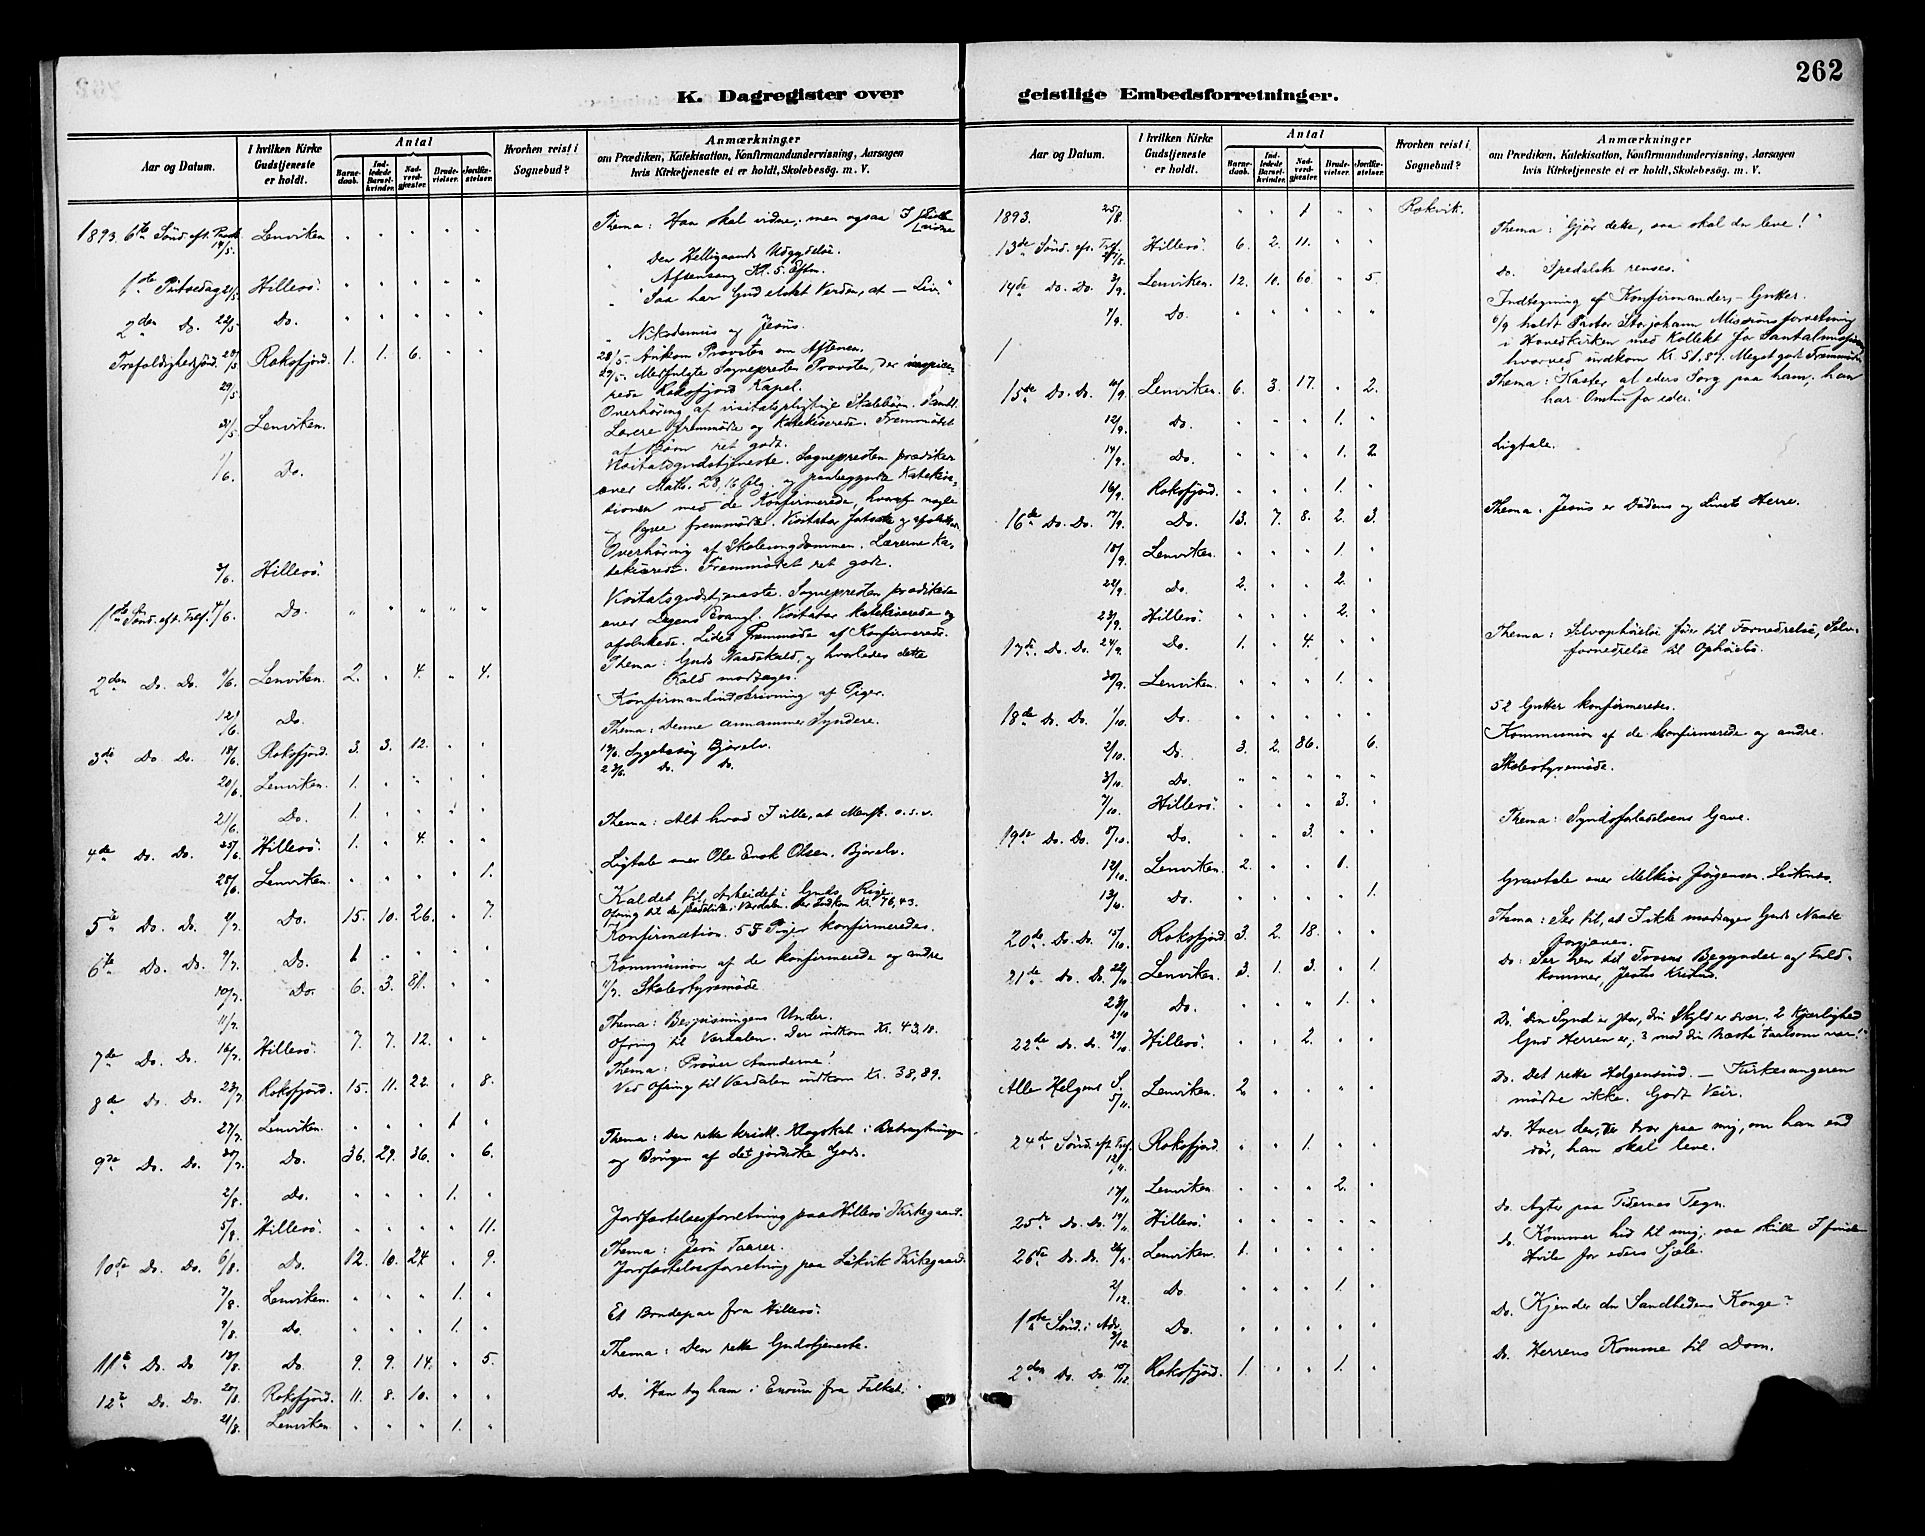 262
K. Dagregister over geistlige Embedsforretninger.
Aar og Datum. I hvilken Kirke Gudstjeneste er holdt. Antal Barnedaab. Indledede Barselkvinder. Nadverdgjæster. Brudevielser. Jordfæstelser. Hvorhen reist i Sognebud? Anmærkninger om Prædiken, Katekisation, Konfirmandundervisning, Aarsagen hvis Kirketjeneste ei er holdt, Skolebesøg. m. V.
1893. 6te Sönd. eft. Paask. 14/5. Lenviken " " " " " Thema: Han skal vidne, men ogsaa I skulle vidne
" Den Helligaands Udgydelse.
Aftensang Kl. 5. Eftm.
1ste Pintsedag 21/5. Hillesö. " " " " " " "Saa har Gud elsket Verden, at – Liv."
2den Do. 22/5. Do. " " " " " " Nikodemus og Jesus.
Trefoldighedssönd. 28/5. Roksfjord. 1. 1. 6. " " 28/5. Ankom Provsten om Aftenen.
29/5. 29/5. Medfulgte Sognepresten Provsten, der inspicerede Roksfjord Kapel.
31/5. Lenviken. Overhöring af visitatspligtige Skolebörn. Samtl.
Lærere fremmödte og katekiserede. Fremmödet
af Börn ret godt.
1/6. Do. Visitatsgudstjeneste. Sognepresten prædiker
over Matth. 28,16 flg. og paabegyndte Katekisationen
med de Konfirmerede, hvoraf nogle
Overhöring af Skoleungdommen. Lærerne katekiserede.
3/6. Hillesö. Fremmödet ret godt.
Visitatsgudstjeneste. Sognepresten prædikede
1ste Sönd. eft. Tref. 4/6. Do. " " " " " over Dagens Evangl. Visitator katekiserede og
afsluttede. Lidet Fremmöde af Konfirmerede.
Thema: Guds Naadekald, og hvorledes dette
Kald modtages.
2den Do. Do. 11/6. Lenviken. 2. " 4. " 4.
12/6. Do. Konfirmandindskrivning af Piger.
Thema: Denne annammer Syndere.
3die Do Do. 18/6. Roksfjord. 3. 3. 12. " " 19/6. Sygebesög Bjorelv.
23/6. Do. Do.
20/6. Lenviken. 1. " " " "
21/6. Do. 1. " " " " Thema: Alt hvad I ville, at Mensk. o.s.v.
4de Do. Do. 25/6. Hillesö. 1. " 4. " "
28/6. Lenviken. " " " " 1. Ligtale over Ole Enok Olsen. Bjorelv.
Kaldet til Arbeidet i Guds Rige.
5te Do. Do. 2/7. Do. 15. 10. 26. " 7. Ofring til de skadelidte i Værdalen. Der indkom Kr. 76,43.
6te Do. Do. 9/7. Do. 1 " " " " Konfirmation. 55 Piger konfirmeredes.
10/7. Do. 6. 3. 81. " " Kommunion af de konfirmerede og andre
11/7. 11/7. Skolestyremöde
7de Do. Do. 16/7. Hillesö. 7. 7. 12. " " Thema: Bespisningens Under.
Ofring til Værdalen. Der indkom Kr. 43,10.
8de Do. Do. 23/7. Roksfjord. 15. 11. 22. " 8. Thema: Pröver Aanderne!
Ved Ofring til Værdalen indkom Kr. 38,89.
27/7. Lenviken. " " " 1 "
9de Do. Do. 30/7. Do. 36. 29. 36. " 6. Thema: Den rette kristl. Klogskab i Betragtningen
og Brugen af det jordiske Gods.
2/8. Do. " " " 1. "
5/8. Hillesö. " " " " 11. Jordfæstelsesforretning paa Hillesö Kirkegaard.
10de Do. Do. 6/8. Do. 12. 10. 24. " 9. Thema: Jesu Taarer.
Jordfæstelsesforretning paa Kirkegaard.
7/8. Lenviken. " " " 1. "
9/8. Do. " " " 1. " Et Brudepar fra Hillesö.
11te Do. Do 13/8. Do. 9. 9. 14. " 5. Thema: Den rette Gudstjeneste.
12te Do. Do. 20/8. Roksfjord. 11. 8. 10. " " Do. "Han tog ham i Enrum fra Folket."
21/8. Lenviken. " " " 1. "
Aar og Datum. I hvilken Kirke Gudstjeneste er holdt. Antal Barnedaab. Indledede Barselkvinder. Nadverdgjæster. Brudevielser. Jordfæstelser. Hvorhen reist i Sognebud? Anmærkninger om Prædiken, Katekisation, Konfirmandundervisning, Aarsagen hvis Kirketjeneste ei er holdt, Skolebesøg. m. V.
1893. 25/8. " " 1 " " Rokvik.
13de Sönd. eft. Tref. 27/8. Hillesö. 6. 2. 11. " " Thema: "Gjör dette, saa skal du leve!"
14de Do. Do. 3/9. Lenviken. 12. 10. 60. " 5. Do. "Spedalske renses."
7/9. Do. " " " " " Indtegning af Konfirmander, – Gutter.
6/9 holdt Pastor Storjohann Missionsforretning
i Hovedkirken med Kollekt for Santalmissionen
hvorved indkom Kr. 51,87. Meget godt Fremmöde.
15de Do. Do. 10/9. Lenviken. 6. 3. 17. " 2. Thema: "Kaster al eders Sorg paa ham, han
har Omhu for eder."
12/9. Do. " " " 1. "
14/9. Do. " " " 1. 2. Ligtale.
16/9. Roksfjord. " " " 1. "
16de Do. Do. 17/9. Do. 13. 7. 8. 2. 3. Thema: Jesus er Dödens og Livets Herre.
18/9. Lenviken. " " " 1. "
22/9. Do. 2. " " 2. "
23/9. Hillesö. " " " 2. "
17de Do. Do. 24/9. Do. 1. " 4. " " Thema: Selvophöielse förer til Fornedrelse, Selvfornedrelse til Ophöielse.
30/9. Lenviken. " " " 1. "
18de Do. Do. 1/10. Do. " " " " " 52 Gutter konfirmeredes.
2/10. Do. 3. 2. 86. " 6. Kommunion af de konfirmerede og andre.
3/10. Do. " " " " " Skolestyremöde.
7/10. Hillesö. " " " 3. "
19de Do. Do. 8/10. Do. " " 3. " " Thema: Syndsforladelsens Gave.
12/10. Lenviken. 2. " " 1. "
13/10. Do. " " " " 1. Gravtale over Melkior Jörgensen. Leiknes.
20de Do. Do. 15/10. Roksfjord. 3. 2. 18. " " Thema: Ser til, at I ikke modtager Guds Naade
forgjæves.
21de Do. Do. 22/10. Lenviken. 3. 1. 3. " 1. Do: Ser hen til Troens Begynder og Fuldkommer, Jesus Kristus.
23/10. Do. " " " 1. "
22de Do. Do. 29/10. Hillesö. " " 2. " " Do. "din Synd er stor, din Skyld er svær, 2 Kjærlighed
Gud Herren er, 3 mod din Næste taalsom vær!"
Alle Helgens S. 5/11. Lenviken. 2 " " " " Do. Det rette Helgensind. – Kirkesangeren
mödte ikke. Godt Veir.
24de Sönd. eft. Tref. 12/11. Roksfjord. " " 1. " " Do. Hver den, der tror paa mig, om han end
dör, han skal leve.
17/11. Lenviken " " " 2. "
25de Do. Do. 19/11. Hillesö. " " " " " Do. Agter paa Tidernes Tegn.
26de Do. Do. 26/11. Lenviken. 1. " " " " Do. Kommer hid til mig, saa skulle I finde
Hvile for eders Sjæle.
2/12. Do. " " " 1. "
1ste Sönd. i Adv. 3/12. Do. " " " " " Do. Kjender du Sandhedens Konge?
2den Do. Do. 10/12. Roksfjord. 1. " " 1. " Do. Herrens Komme til Dom.